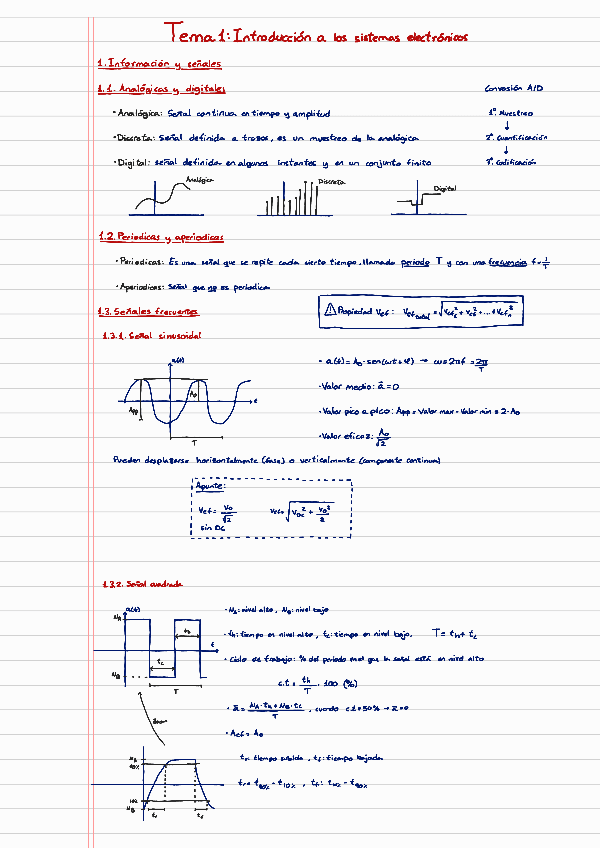 Tema 1: Introducción a los sistemas electrónicos
1. Información y señales
1.1. Analógicas y digitales
Conversión A/D
· Analógica: Señal continua en tiempo y amplitud
1º. Muestreo
↓
· Discreta: Señal definida a trozos, es un muestreo de la analógica
2º. Cuantificación
↓
· Digital: señal definida en algunos instantes y en un conjunto finito
3º. Codificación
Analógica
Discreta
Digital
1.2. Periodicas y aperiodicas
· Periodicas: Es una señal que se repite cada cierto tiempo, llamado periodo T y con una frecuencia f=1/T
· Aperiodicas: Señal que no es periodica
1.3. Señales frecuentes
⚠ Propiedad Vef: Vef total = √(Vef₁² + Vef₂² + ... + Vefₙ²)
1.3.1. Señal sinusoidal
a(t)
A₀
App
t
T
· a(t) = A₀ · sen(ωt+φ) → ω=2πf = 2π/T
· Valor medio: ā = 0
· Valor pico a pico: App = Valor max - Valor min = 2·A₀
· Valor eficaz: A₀/√2
Pueden desplazarse horizontalmente (fase) o verticalmente (componente continua)
Apunte:
Vef = V₀/√2
sin DC
Vef = √(V_DC² + V₀²/2)
1.3.2. Señal cuadrada
a(t)
N_A
N_B
t_h
t_L
t
T
· N_A: nivel alto, N_B: nivel bajo
· t_h: tiempo en nivel alto, t_L: tiempo en nivel bajo. T = t_h + t_L
· Ciclo de trabajo: % del periodo en el que la señal está en nivel alto
c.t = t_h/T · 100 (%)
· ā = (N_A·t_h + N_B·t_L)/T, cuando c.t = 50% → ā = 0
· Aef = A₀
N_A
90%
10%
N_B
t_r
t_f
t_r: tiempo subida, t_f: tiempo bajada
t_r = t_90% - t_10%, t_f: t_10% - t_90%